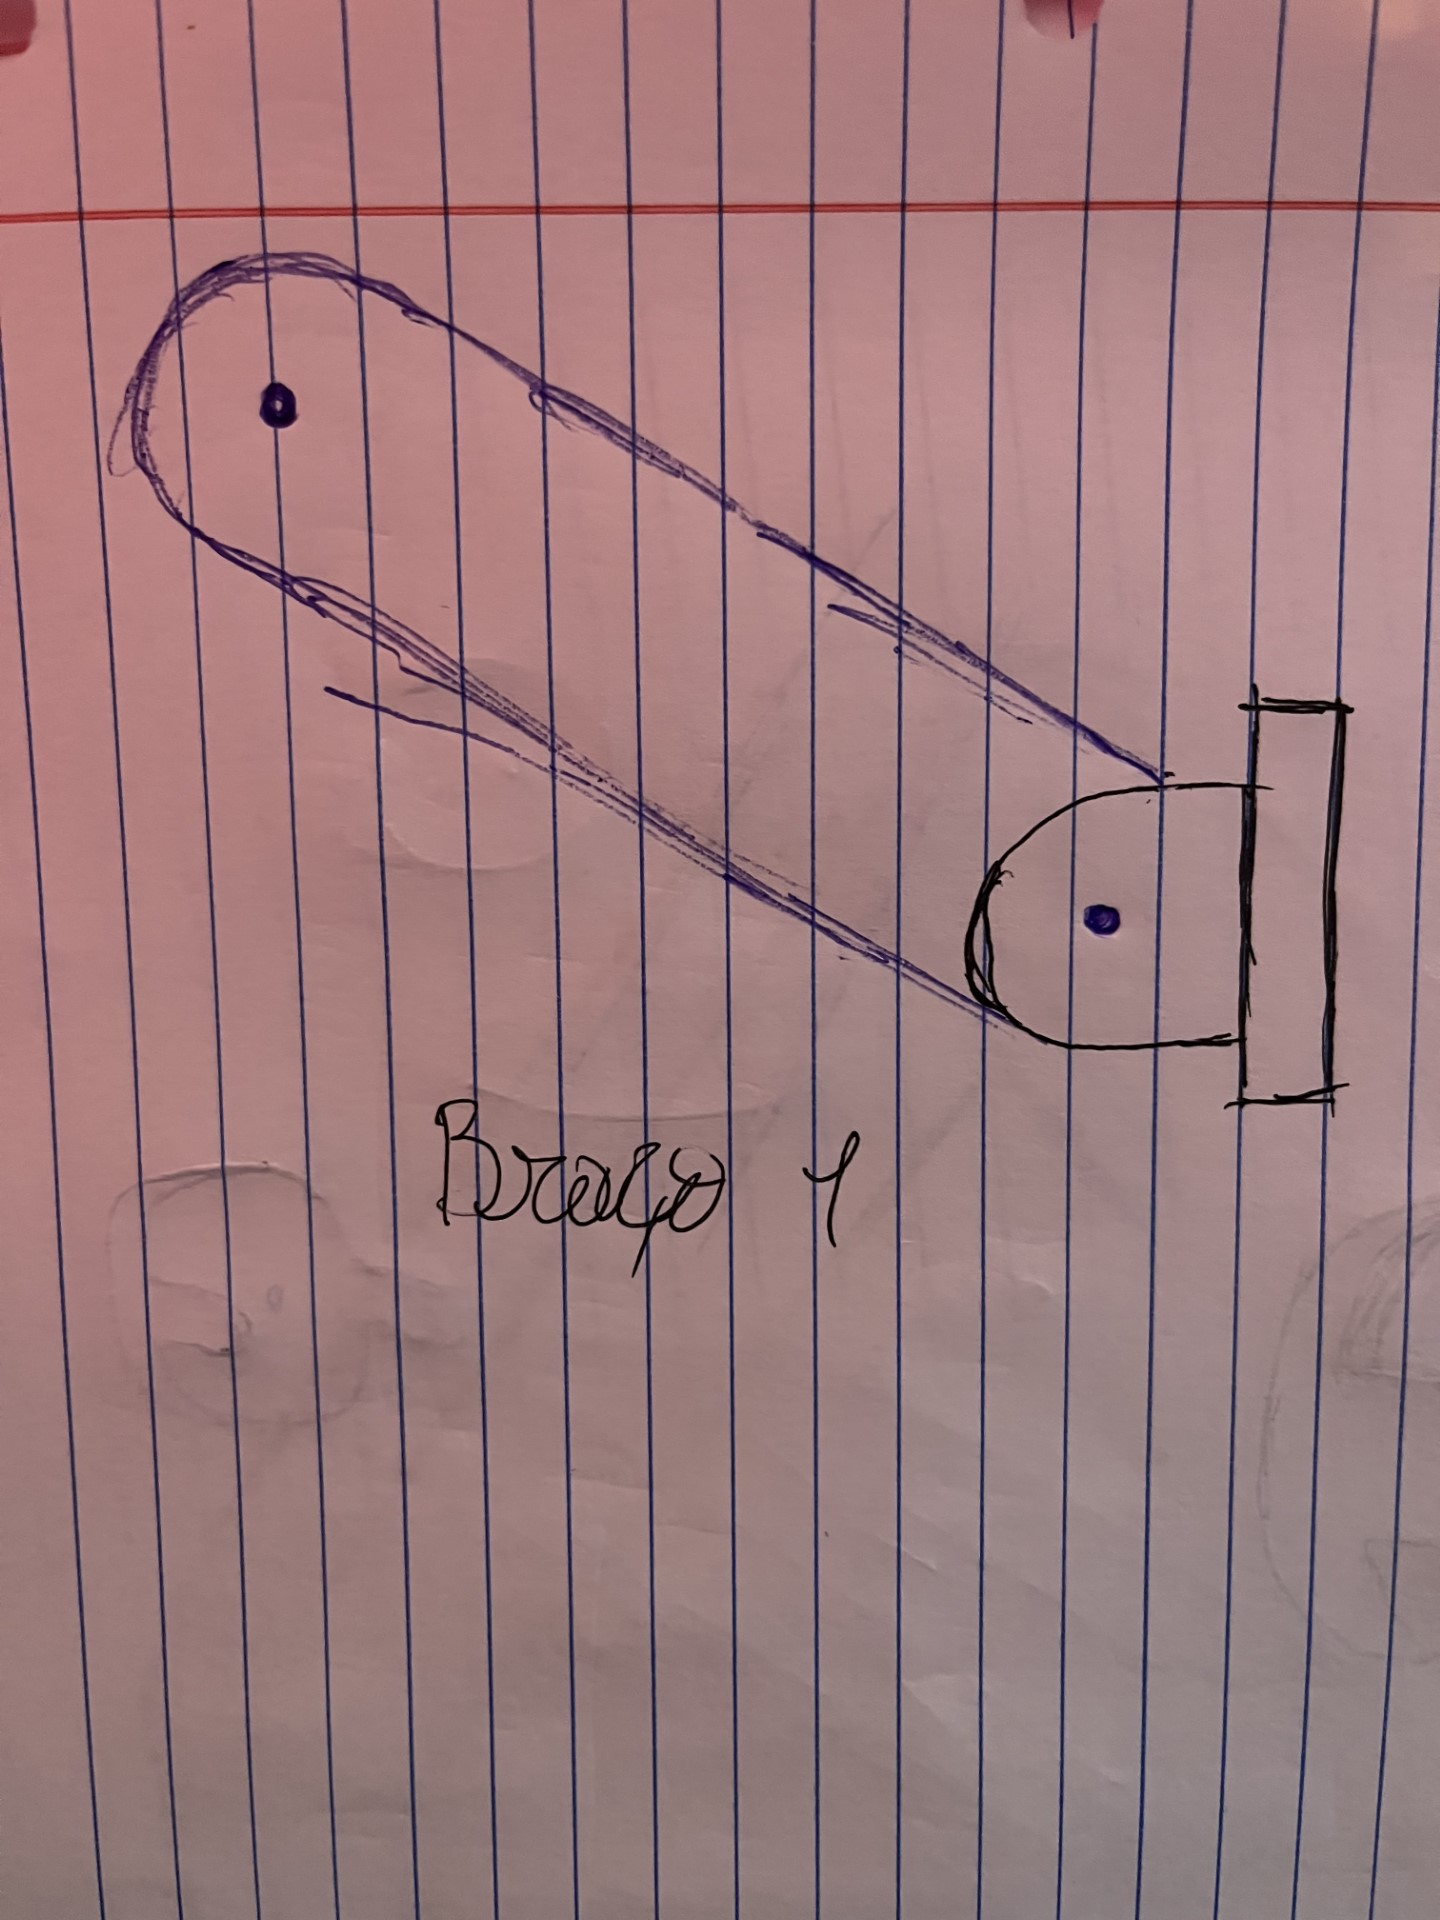 Braço 1